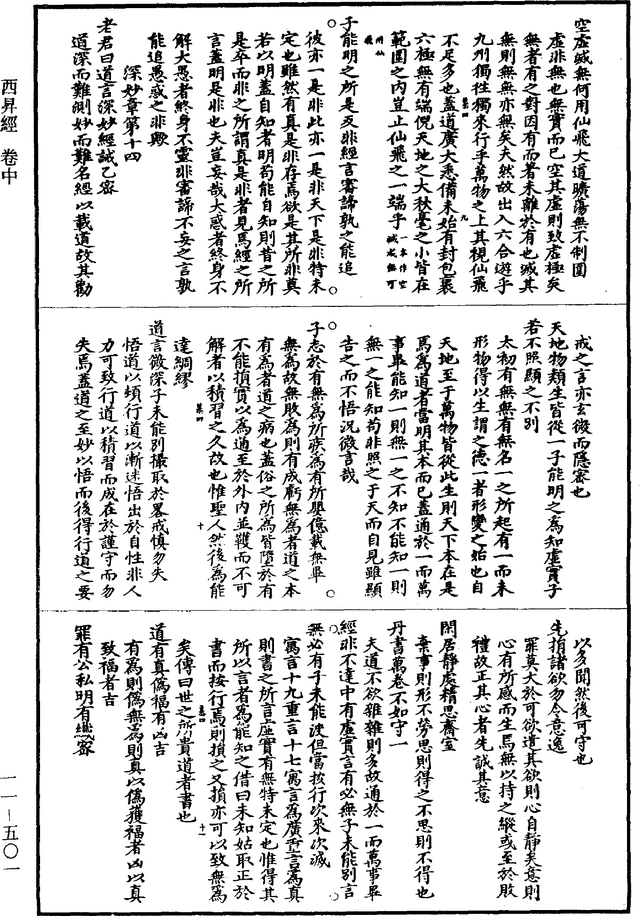 空虛緘無何用仙飛大道曠蕩無不制圍
虛非無也無實而已空其虛則致虛極矣
無者有之對因有而著未離於有也滅其
無則無無亦無矣夫然故出入六合遊乎
九州獨往獨來行乎萬物之上其視仙飛
不足多也蓋道廣大悉備未始有封包裹
六極無有端倪天地之大秋毫之小皆在
範圍之內豈止仙飛之一端乎
子能明之所是反非經言審諦孰之能追
彼亦一是非此亦一是非天下是非特未
定也雖然有真是非存焉欲是其所非莫
若以明蓋自知者明苟能自知則昔之所
是卒而非之所謂真是非者見焉經之所
言蓋明是非也夫豈妄哉大惑者終身不
解大愚者終身不靈非審諦不妄之言孰
能追愚惑之非歟
深妙章第十四
老君曰道言深妙經誡乙密
道深而難測妙而難名經以載道故其勸
戒之言亦玄微而隱密也
天地物類生皆從一子能明之為知虛實子
若不照顯之不別
太初有無無有無名一之所起有一而未
形物得以生謂之德一者形變之始也自
天地至于萬物皆從此生則天下本在是
焉為道者當明其本而已蓋通於一而萬
事畢能知一則無一之不知不能知一則
無一之能知苟非照之于天而自見雖顯
告之而不悟況微言哉
子志於有無為所疾為有所嬰億載無畢
無為故無敗為則有成虧無為者道之本
有為者道之病也蓋俗之所為皆墮於有
不能損實以為通至於外內並韄而不可
解者以積習之久故也惟聖人然後為能
達綢繆
道言微深子未能別撮取於畧戒慎勿失
悟道以頓行道以漸迷悟出於自性非人
力可致行道以積習而成在於謹守而勿
失焉蓋道之至妙以悟而後得行道之要
以多聞然後可守也
先捐諸欲勿令意逸
罪莫大於可欲遣其欲則心自靜矣意則
心有所感而生焉無以持之縱或至於敗
禮故正其心者先誠其意
閑居靜處精思齋室
棄事則形不勞思則得之不思則不得也
丹書萬卷不如守一
夫道不欲雜雜則多故通於一而萬事畢
經非不達中有虛實言有必無子未能別言
無必有子未能決但當按行次來次滅
寓言十九重言十七寓言為廣重言為真
則書之所言虛實有無特未定也惟得其
所以言者為能知之借曰未知姑取正於
書而按行焉則損之又損亦可以致無為
矣傳曰世之所貴道者書也
道有真偽福有凶吉
有為則偽無為則真以偽獲福者凶以真
致福者吉
罪有公私明有纖密
西昇經 卷中
一一-五〇一